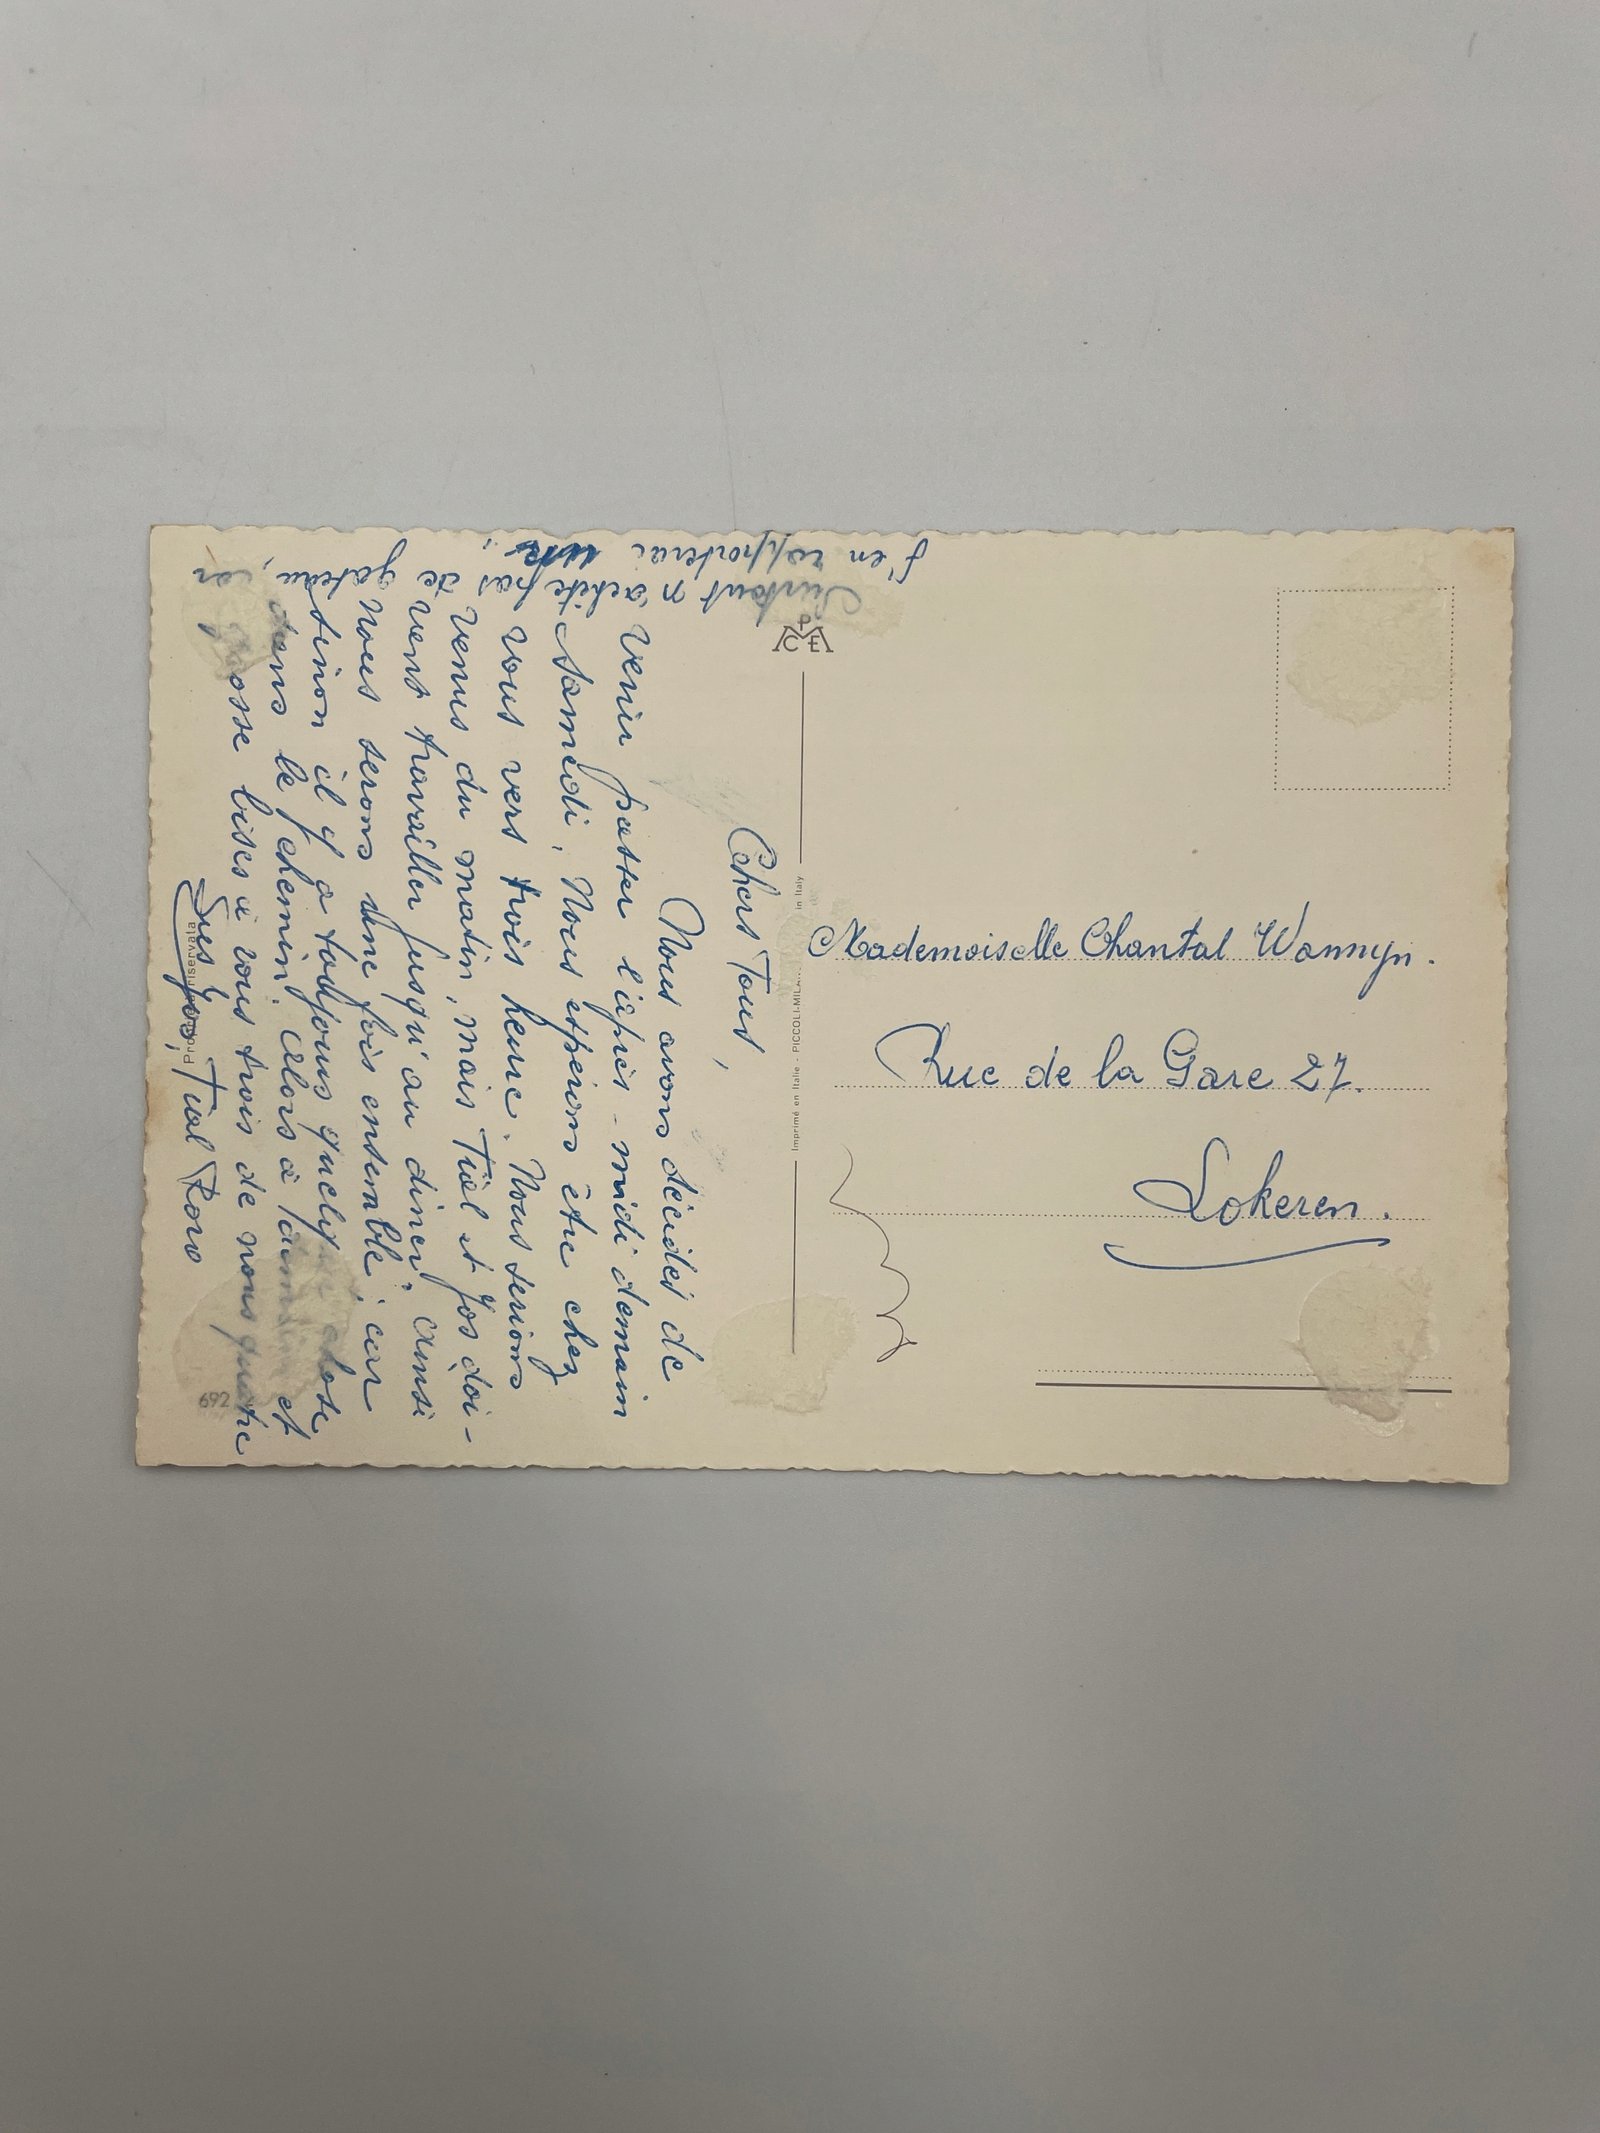 Chers Tous,
Nous avons décidés de
venir passer l'après-midi demain
Samedi. Nous espérons être chez
vous vers trois heure. Nous serions
venus du matin, mais Tiel et Jos doi-
vent travailler jusqu'au diner; ainsi
nous serons une fois ensemble; car
sinon il y a toujours quelque chose
dans le chemin. Alors à demain et
grosse bises à vous trois de nous quatre
Jos, Roro
Surtout n'achète pas de gateau, car
j'en rapporterai
Mademoiselle Chantal Wannyn.
Rue de la Gare 27.
Lokeren.
PCE
Imprimé en Italie - PICCOLI-MILA in Italy
692